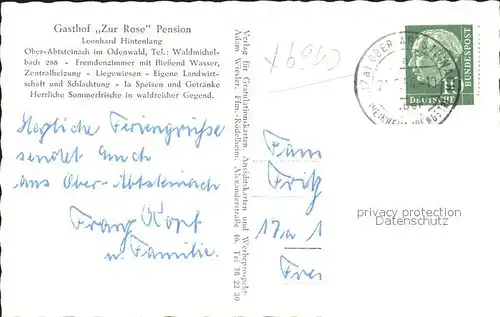 Gasthof „Zur Rose" Pension
Leonhard Hintenlang
Ober-Abtsteinach im Odenwald, Tel.: Waldmichel-
bach 288 - Fremdenzimmer mit fließend Wasser,
Zentralheizung - Liegewiesen - Eigene Landwirt-
schaft und Schlachtung - la Speisen und Getränke
Herrliche Sommerfrische in waldreicher Gegend.
Herzliche Feriengrüsse
sendet Euch
aus Ober-Abtsteinach
Franz Kopf
u. Familie.
Verlag für Gratulationskarten, Ansichtskarten und Werbeprospekte
Adam Wiesler, Ffm.-Rödelheim, Alexanderstraße 46, Tel 78 22 30
X6940
DEUTSCHE
BUNDESPOST
10
Fam
Fritz
17a 1
Frei
privacy protection
Datenschutz